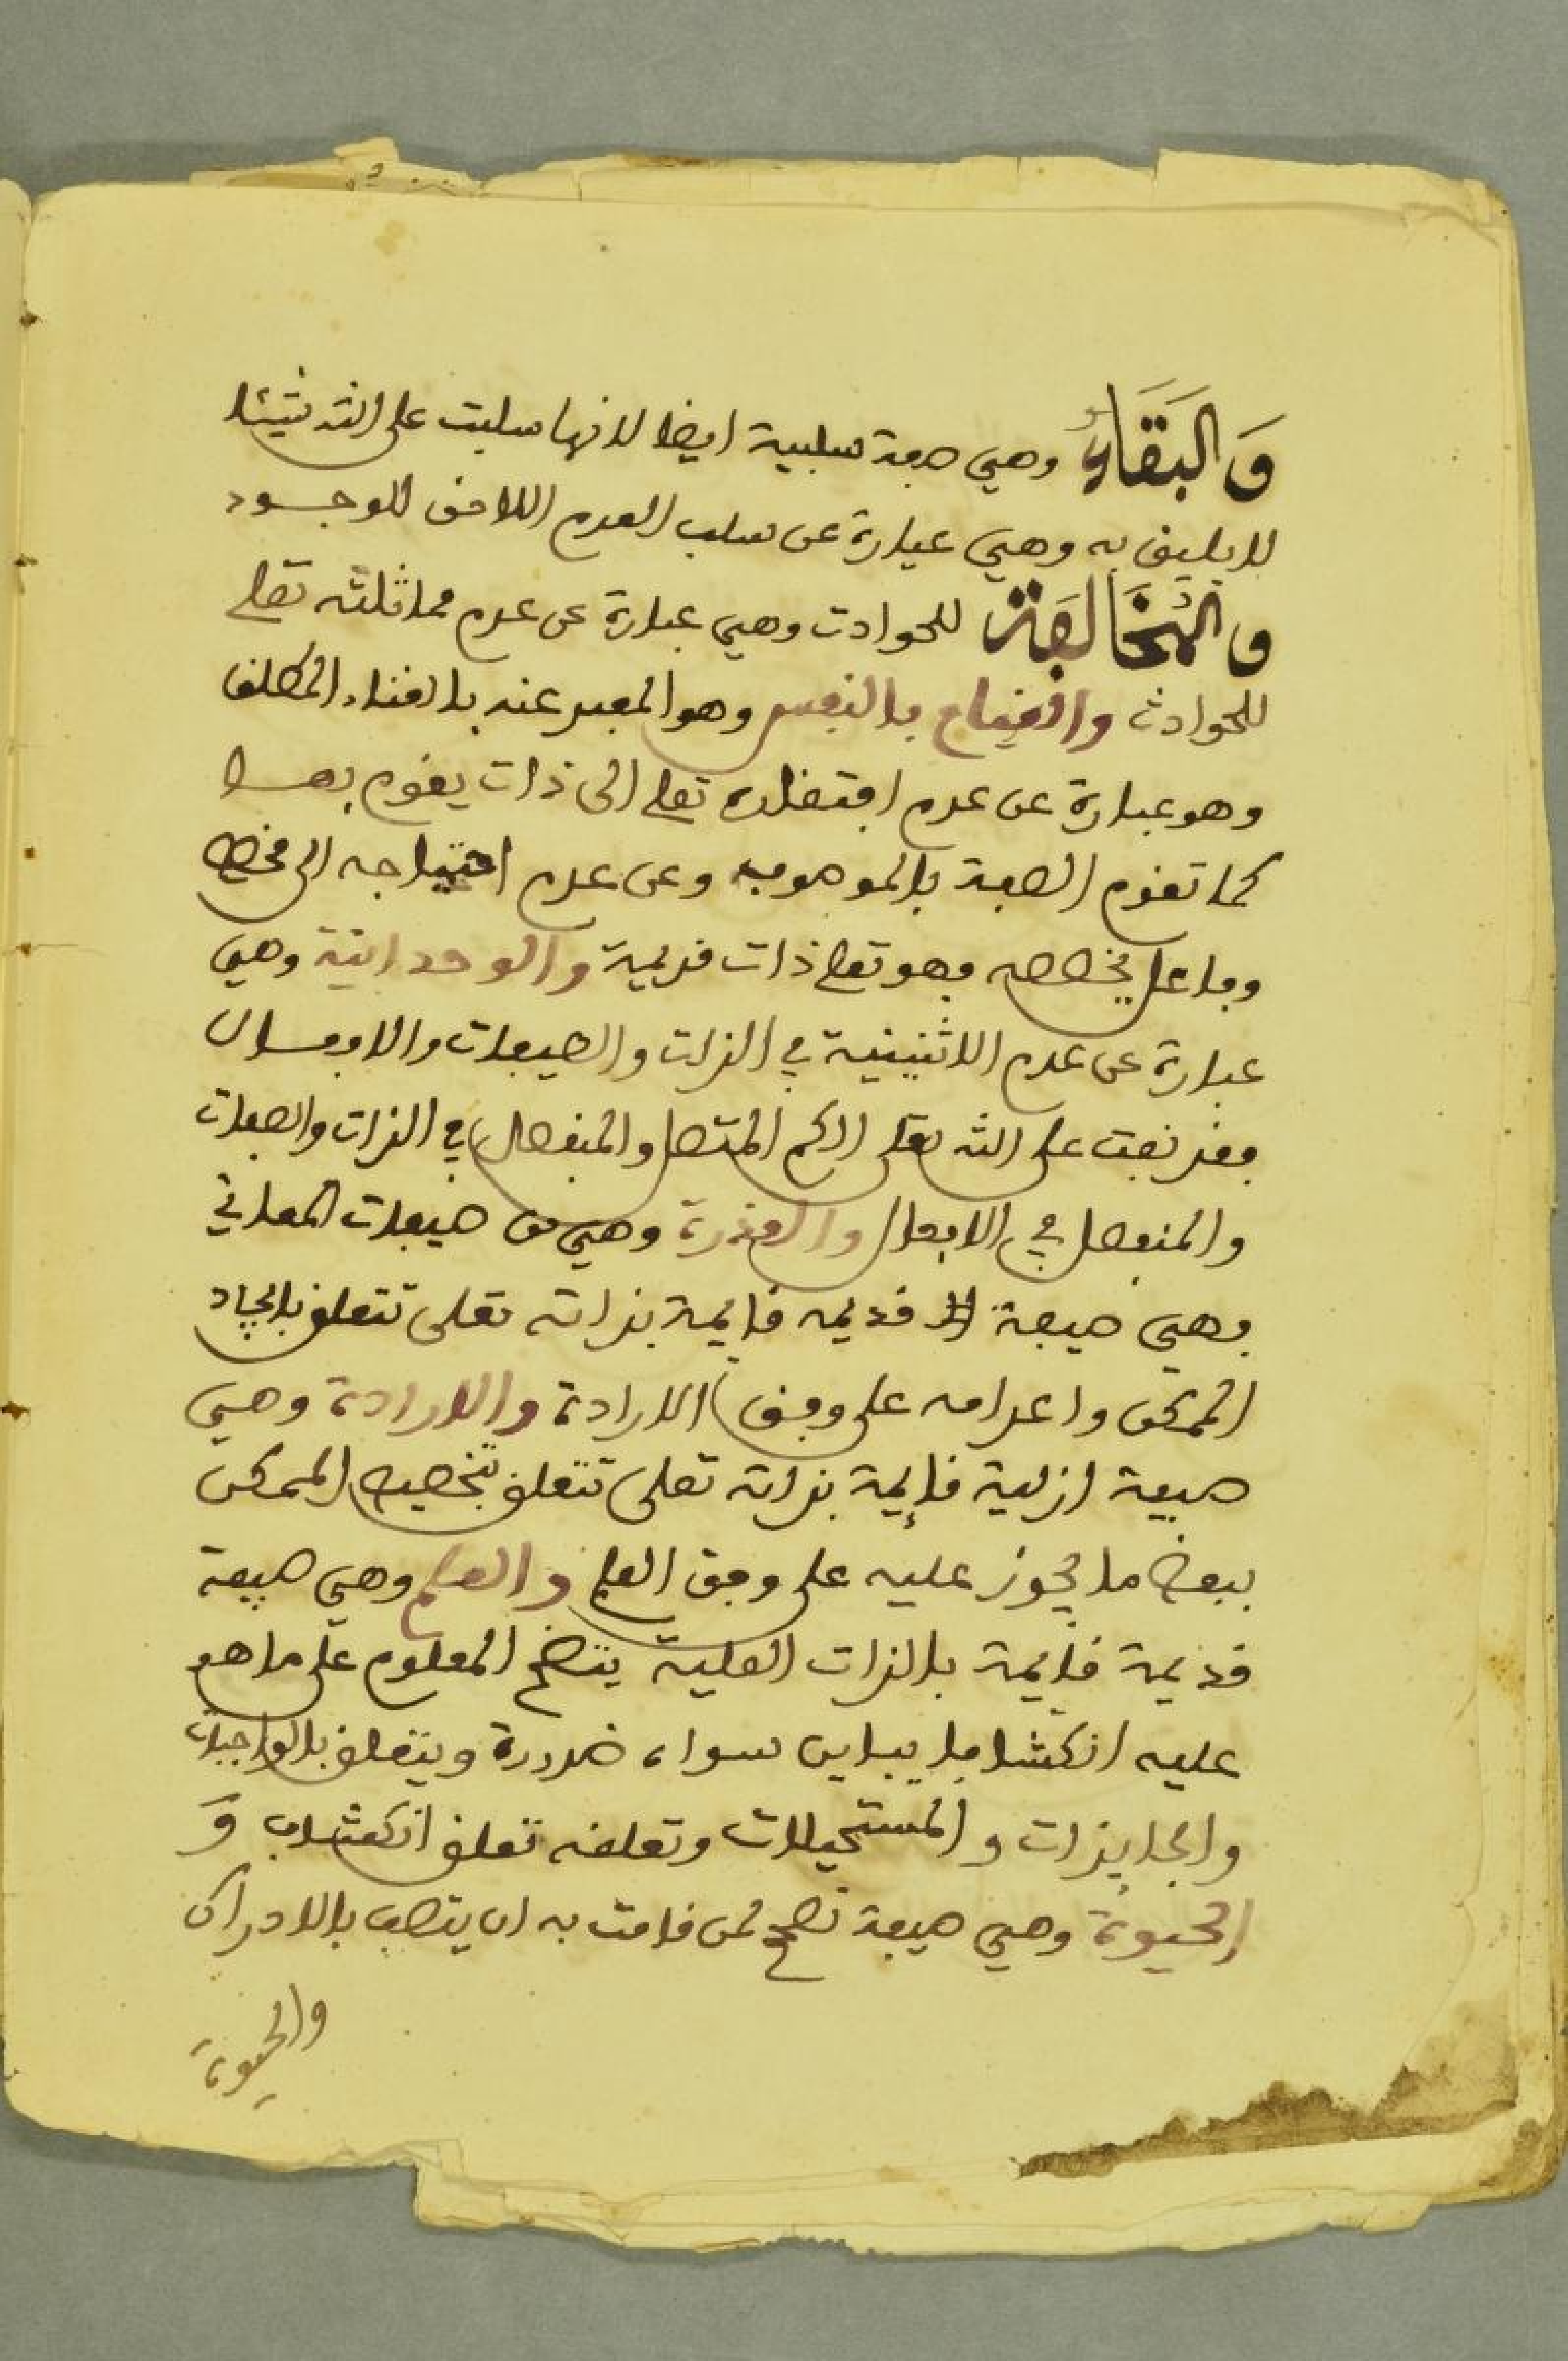 وَالبَقَاءُ وهي صفة سلبية ايضا لانها سلبت على الله شيئا
لا يليق به وهي عبارة عن سلب العدم اللاحق للوجود
والمُخَالَفَة للحوادت وهي عبارة عن عدم مماثلته تعلى
للحوادث والقيام بالنفس وهو المعبر عنه بالغناء المطلق
وهو عبارة عن عدم افتقاره تعلى الى ذات يقوم بها
كما تقوم الصفة بالموصوف وعن عدم احتياجه الى مخصص
وفاعل يخصصه فهو تعلى ذات قديمة والوحدانية وهي
عبارة عن عدم الاثنينية في الذات والصيفات والافعال
فقد نفت على الله تعلى الكم المتصل والمنفصل في الذات والصفات
والمنفصل في الافعال والقدرة وهي من صيفات المعاني
فهي صيفة قديمه قايمة بذاته تعلى تتعلق بايجاد
الممكن واعدامه على وفق الارادة والارادة وهي
صيفة ازلية قايمة بذاته تعلى تتعلق بتخصيص الممكن
ببعض ما يجوز عليه على وفق العلم والعلم وهي صيفة
قديمة قايمة بالذات العلية يتضح المعلوم على ما هو
عليه انكشافا يباين سواء ضرورة ويتعلق بالواجبات
والجايزات والمستحيلات وتعلقه تعلق انكشاف وَ
الحيوة وهي صيفة تصح لمن قامت به ان يتصف بالادراك
والحيوة